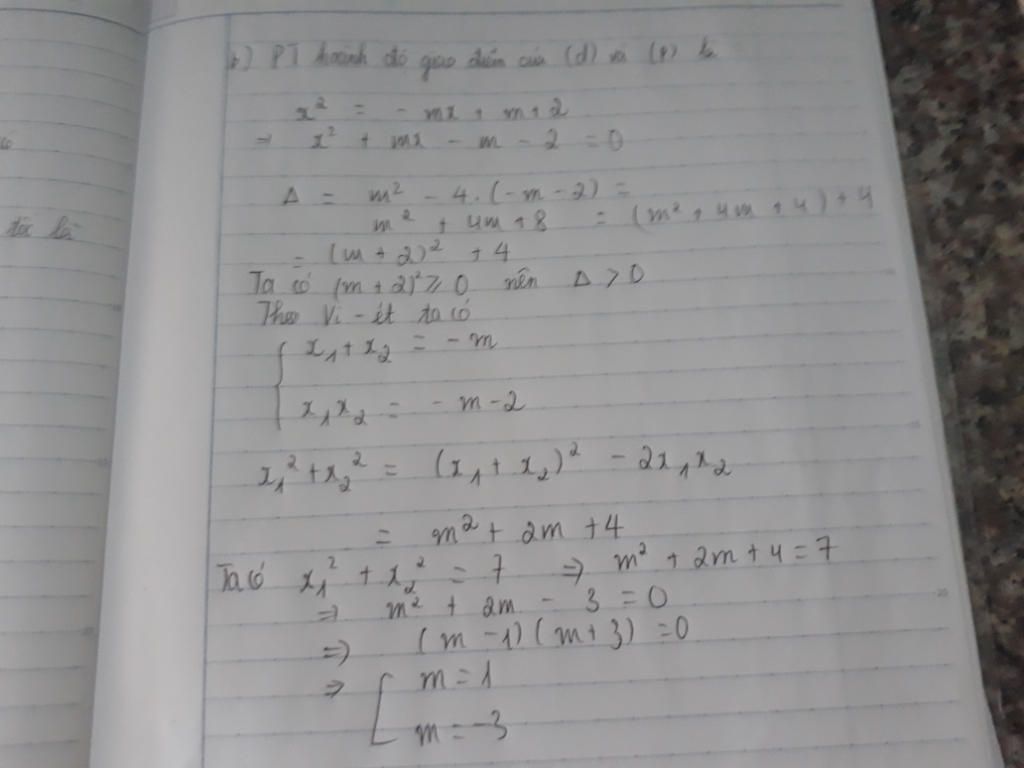 có
đó là
b) PT hoành độ giao điểm của (d) và (P) là
x² = - mx + m + 2
⇒ x² + mx - m - 2 = 0
Δ = m² - 4.(-m - 2) =
m² + 4m + 8 = (m² + 4m + 4) + 4
= (m + 2)² + 4
Ta có (m + 2)² ≥ 0 nên Δ > 0
Theo Vi - ét ta có
{ x₁ + x₂ = - m
x₁x₂ = - m - 2
x₁² + x₂² = (x₁ + x₂)² - 2x₁x₂
= m² + 2m + 4
Ta có x₁² + x₂² = 7 ⇒ m² + 2m + 4 = 7
⇒ m² + 2m - 3 = 0
⇒ (m - 1)(m + 3) = 0
⇒ [ m = 1
m = -3